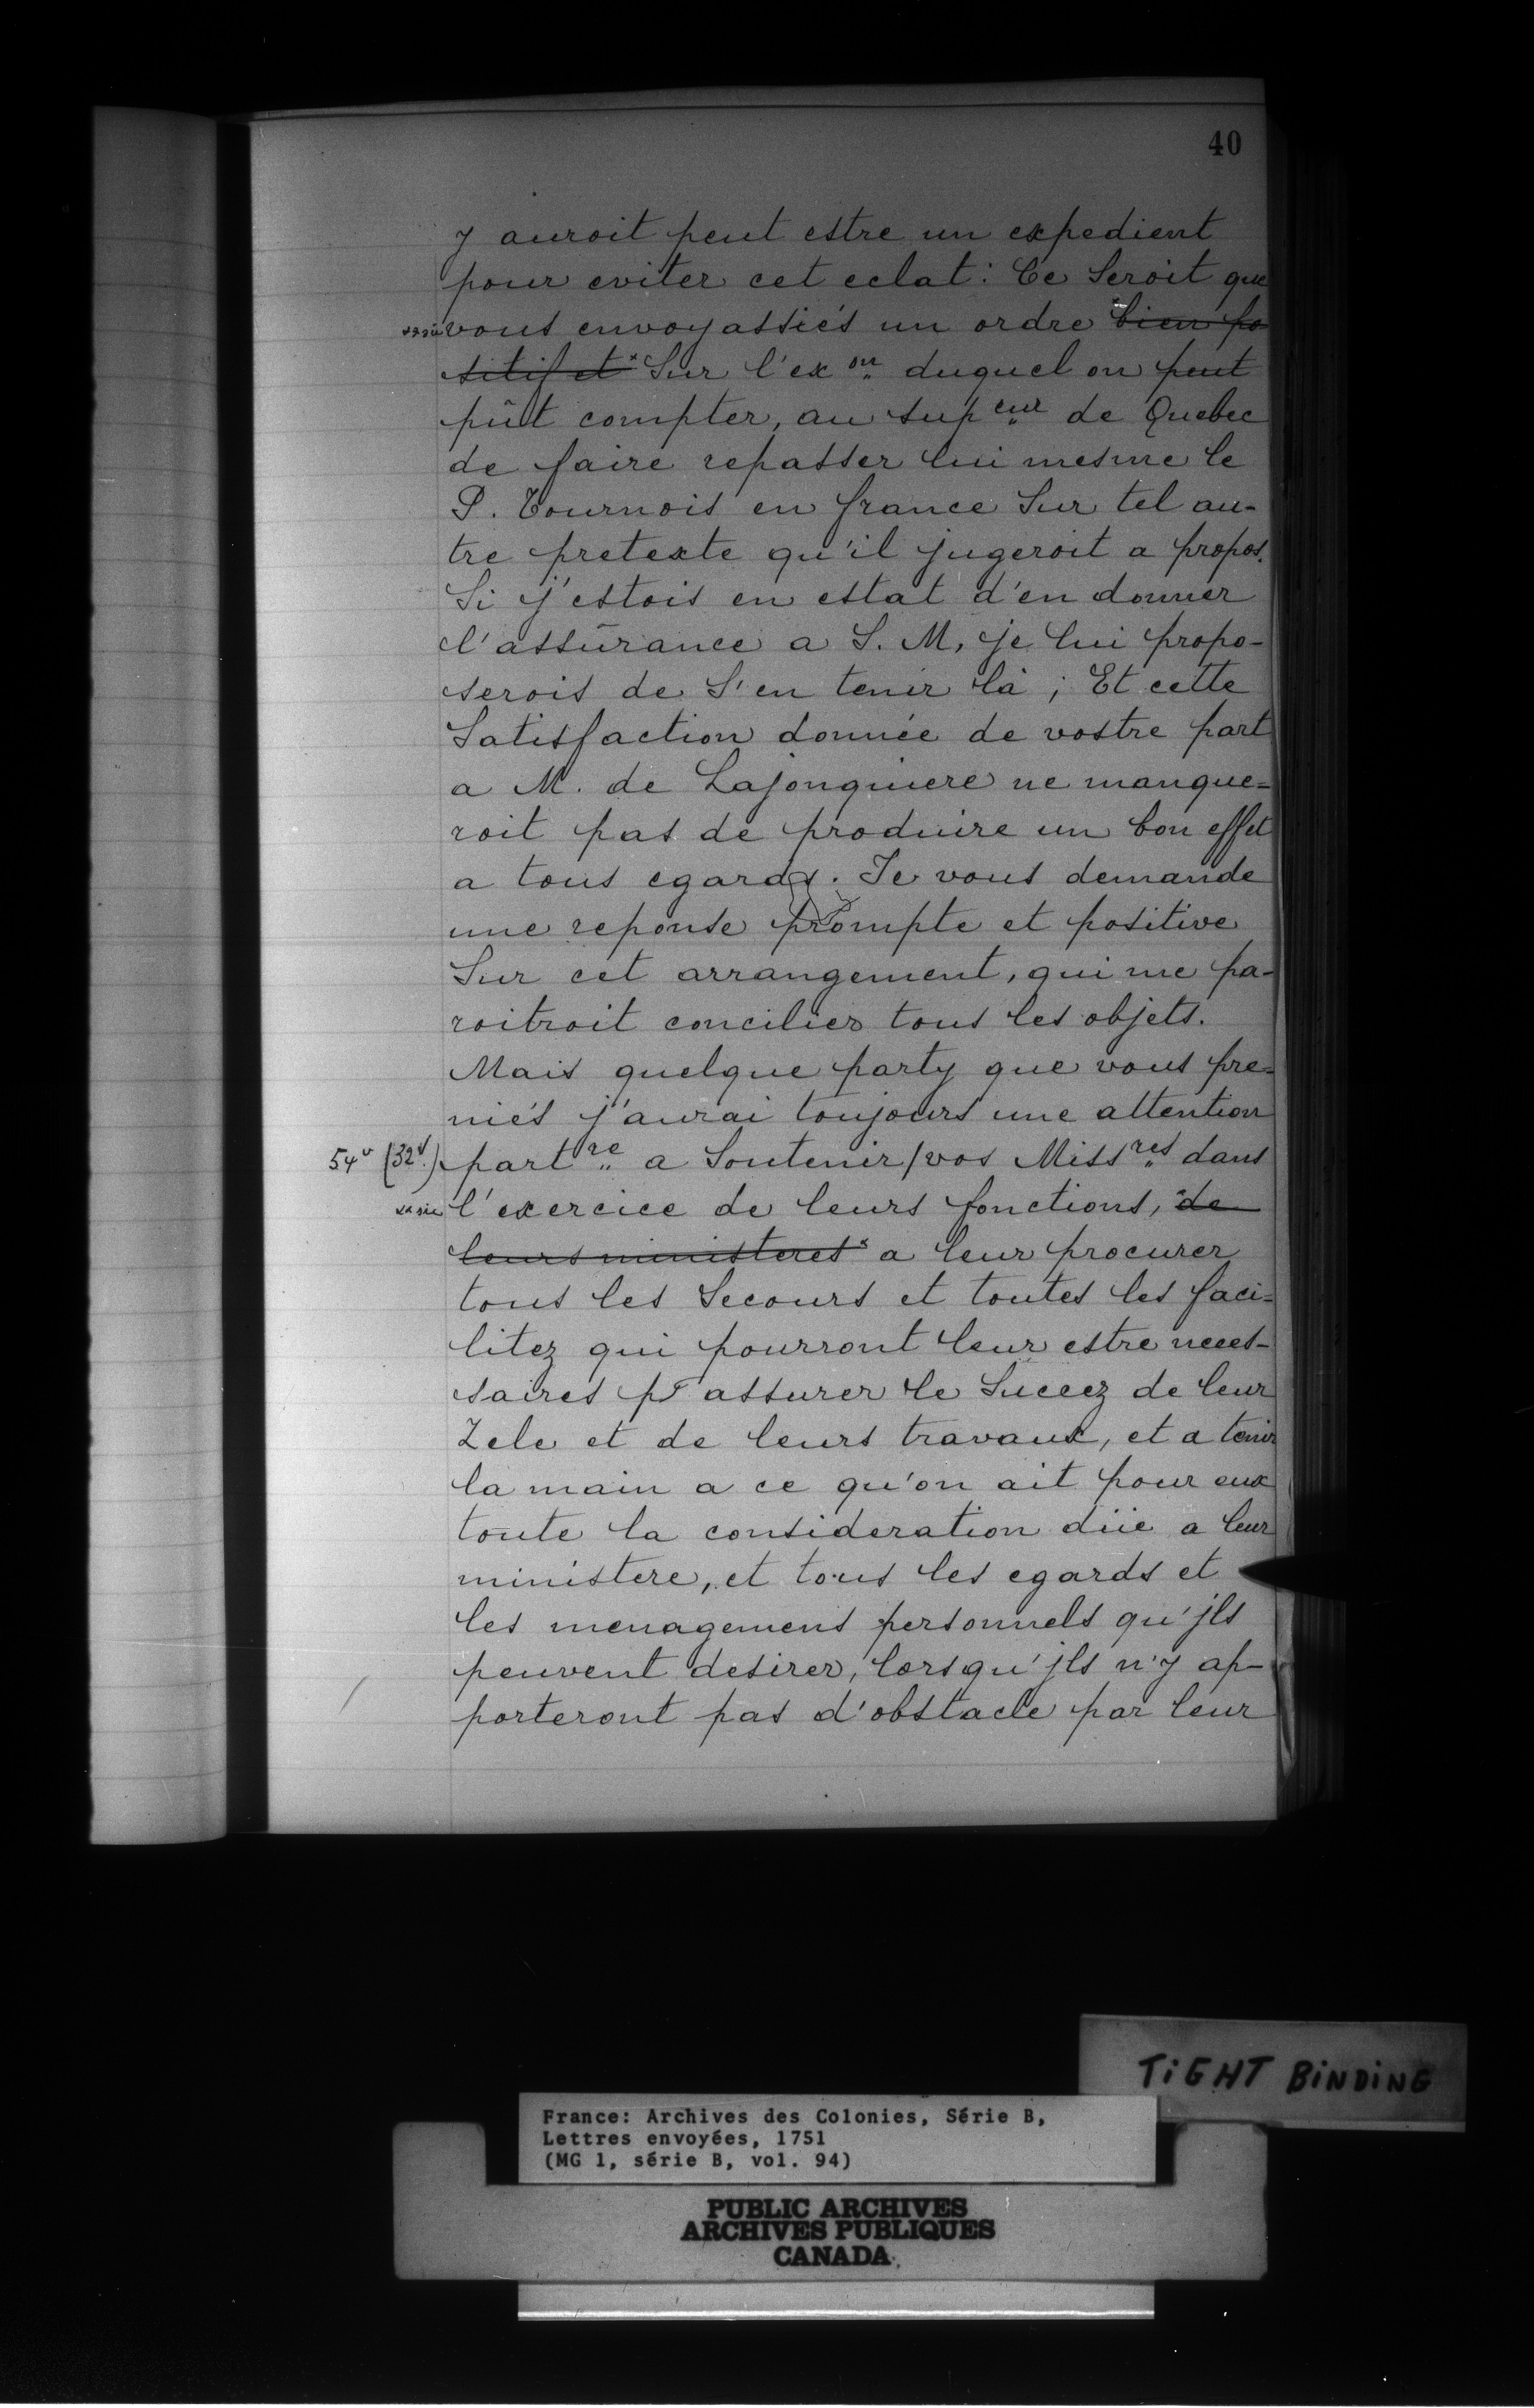 40
y auroit peut estre un expedient
pour eviter cet eclat: Ce Seroit que
vous envoyassiés un ordre bien po
sitif et x Sur l'ex on duquel on peut
pût compter, au sup eur de Quebec
de faire repasser lui mesme le
P. Tournois en france Sur tel au-
tre pretexte qu'il jugeroit a propos.
Si j'estois en estat d'en donner
l'assûrance a S. M, je lui propo-
serois de S'en tenir là; Et cette
Satisfaction donnée de vostre part
a M. de Lajonquiere ne manque=
roit pas de produire un bon effet
a tous egards. Je vous demande
une reponse prompte et positive
Sur cet arrangement, qui me pa-
roitroit concilier tous les objets.
Mais quelque party que vous pre=
niés j'aurai toujours une attention
54v (32v.) part re a Soutenir/vos Miss res dans
l'exercice de leurs fonctions, x de
leurs ministeres x a leur procurer
tous les Secours et toutes les faci=
litez qui pourront leur estre neces-
saires pr assurer le Succez de leur
Zele et de leurs travaux, et a tenir
la main a ce qu'on ait pour eux
toute la consideration düe a leur
ministere, et tous les egards et
les menagemens personnels qu'jls
peuvent desirer, lorsqu'jls n'y ap-
porteront pas d'obstacle par leur
TIGHT BINDING
France: Archives des Colonies, Série B,
Lettres envoyées, 1751
(MG 1, série B, vol. 94)
PUBLIC ARCHIVES
ARCHIVES PUBLIQUES
CANADA